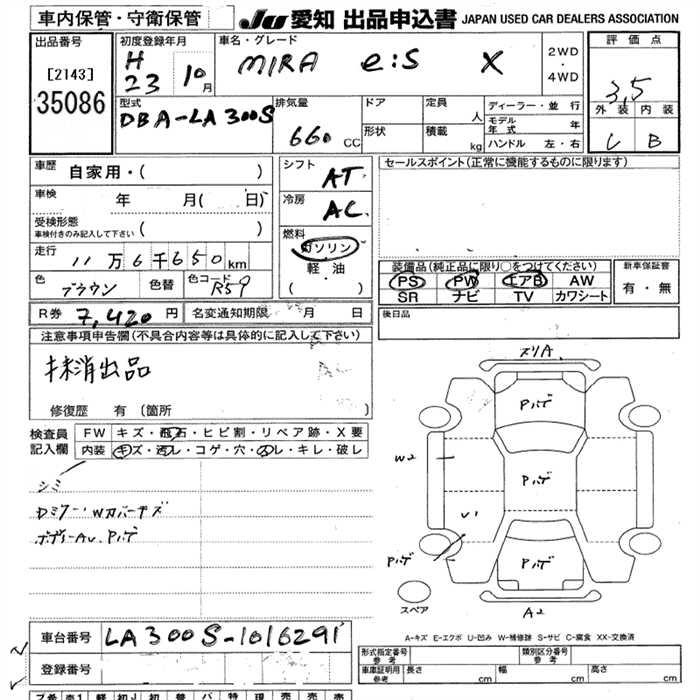 車内保管・守衛保管
JU 愛知 出品申込書 JAPAN USED CAR DEALERS ASSOCIATION
出品番号
[2143]
35086
初度登録年月
H
23 10月
車名・グレード
MIRA e:S X
2WD
・
4WD
評価点
3,5
外装 内装
C B
型式
DBA-LA300S
排気量
660 CC
ドア
形状
定員 人
積載 kg
ディーラー・並行
モデル年式 年
ハンドル 左・右
車歴 自家用・( )
車検 年 月( 日)
受検形態
車検付きのみ記入して下さい ( )
走行 11万6千650km
色 ブラウン 色替 色コード R59
R券 7,420円 名変通知期限 月 日
シフト AT
冷房 AC
燃料 ガソリン
軽・油
( ・ )
セールスポイント(正常に機能するものに限ります)
装備品(純正品に限り○をつけてください)
PS PW エアB AW
SR ナビ TV カワシート
新車保証書
有・無
後日品
注意事項申告欄(不具合内容等は具体的に記入して下さい)
抹消出品
修復歴 有 〔箇所 〕
検査員記入欄
FW キズ・飛石・ヒビ割・リペア跡・X要
内装 キズ・汚レ・コゲ・穴・スレ・キレ・破レ
シミ
Dミラー・Wカバーキズ
ボディーAU、Pハゲ
ズリA
Pハゲ
W2
Pハゲ
U1
Pハゲ
Pハゲ
スペア
A2
A-キズ E-エクボ U-凹み W-補修跡 S-サビ C-腐食 XX-交換済
車台番号 LA300S-1016291
登録番号
形式指定番号 参考
類別区分番号 参考
車庫証明用 参考 長さ cm 幅 cm 高さ cm